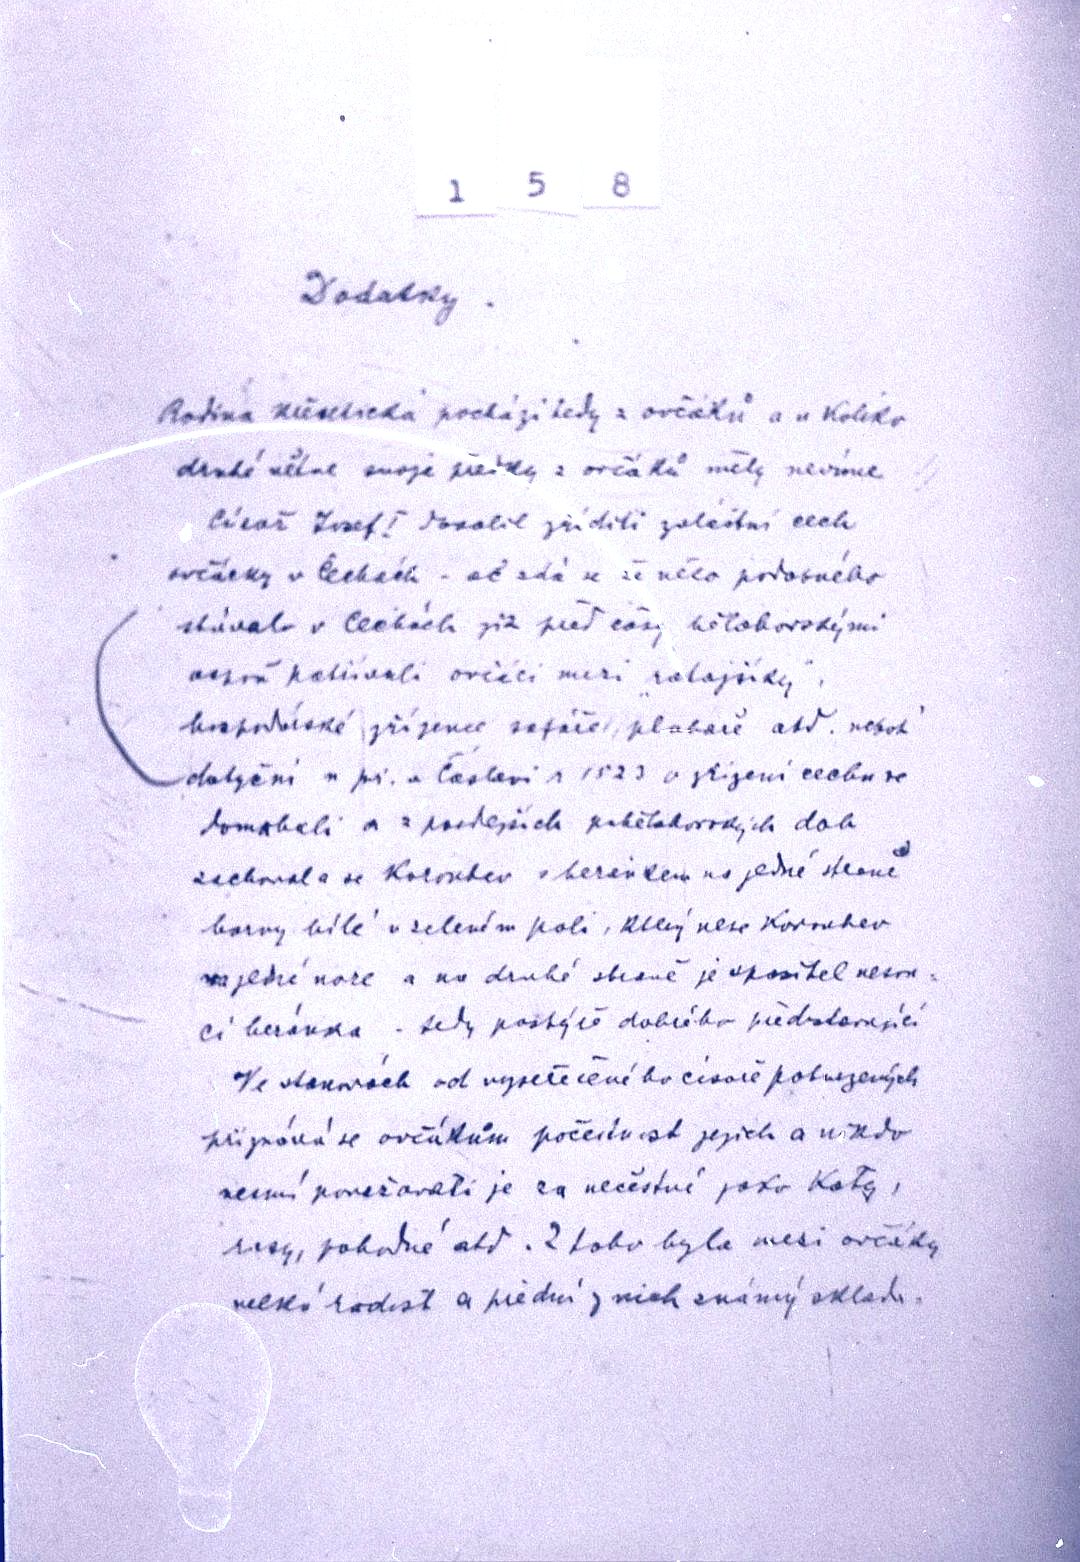 1 5 8
Dodatky.
Rodina pochází tedy z ovčáků a u koliko
druhé větve svoje předky z ovčáků měly nevíme
Císař Josef I dovolil zříditi zvláštní cech
ovčácký v Čechách - ač zdá se že něco podobného
stávalo v Čechách již před časy bělohorskými
patřívali ovčáci mezi „ratajíky",
hospodářské zřízence šafáře, pluhaře atd. neboť
dotyční n př. v Čáslavi r 1523 o zřízení cechu se
domáhali a z pozdějších pobělohorských dob
zachovala se korouhev s beránkem na jedné straně
barvy bílé v zeleném poli, který nese korouhev
na jedné noze a na druhé straně je spasitel nesou-
cí beránka - tedy pastýře dobrého představující
Ve stanovách od výše řečeného císaře potvrzených
přiznává se ovčákům počestnost jejich a nikdo
nesmí považovati je za nečestné jako katy,
rasy, pohodné atd. Z toho byla mezi ovčáky
velká radost a přední z nich známý sklada-